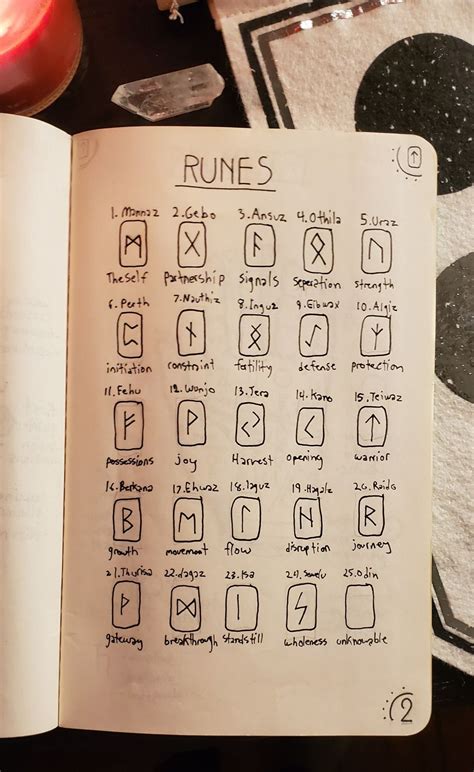 RUNES
1. Mannaz 2. Gebo 3. Ansuz 4. Othila 5. Uraz
ᛗ ᚷ ᚨ ᛟ ᚢ
The self partnership signals seperation strength
6. Perth 7. Nauthiz 8. Inguz 9. Eihwaz 10. Algiz
ᛈ ᚾ ᛝ ᛇ ᛉ
initiation constraint fertility defense protection
11. Fehu 12. Wunjo 13. Jera 14. Kano 15. Teiwaz
ᚠ ᚹ ᛃ ᚲ ᛏ
possessions joy Harvest opening warrior
16. Berkana 17. Ehwaz 18. laguz 19. Hagalz 20. Raido
ᛒ ᛖ ᛚ ᚺ ᚱ
growth movement flow disruption journey
21. Thurisa 22. dagaz 23. Isa 24. Sowelu 25. Odin
ᚹ ᛞ ᛁ ᛊ
gateway breakthrough standstill wholeness unknowable
2